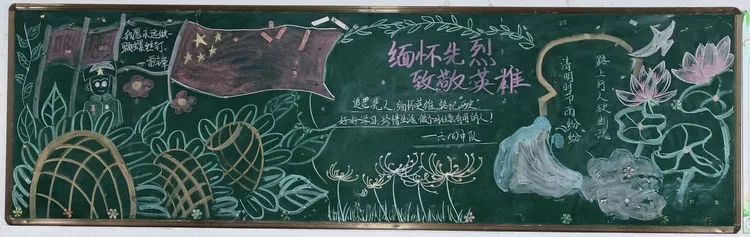 我愿永远做一
颗螺丝钉.
——雷锋
缅怀先烈
致敬英雄
追思先人,缅怀英雄,铭记历史,
好好学习,珍惜生活,做个对社会有用的人!
清明时节雨纷纷
路上行人欲断魂